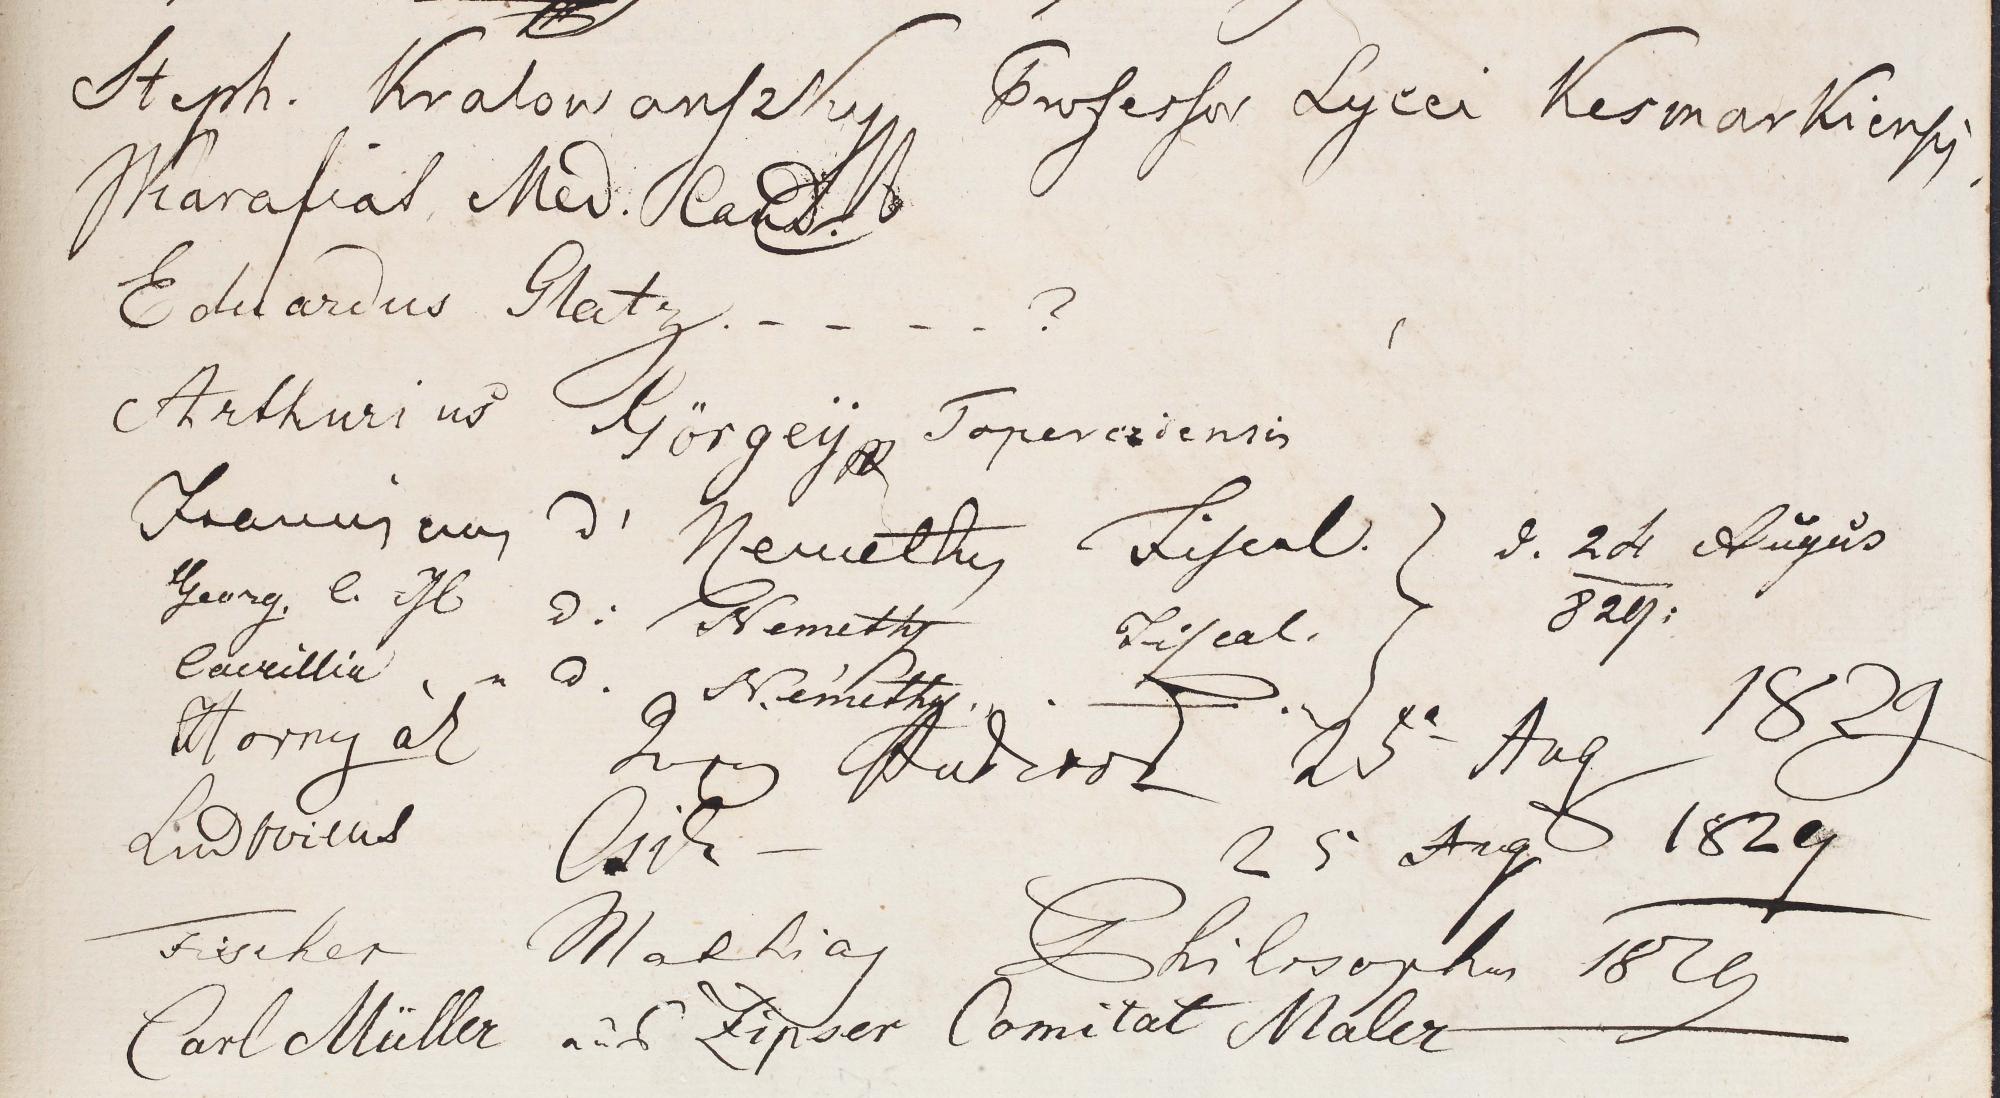 Steph. Kralowanszky Professor Lycei Kesmarkiensis
Karafiat Med. Cand.
Eduardus Glatz. - - - - - ?
Arthurius Görgeij Topercziensis
Franciscus d' Nemethy Fiscal. } d. 24 Augus
Georg. d: Nemethy Fiscal. 829:
d. Némethy
Hornyák 25ta Aug 1829
Ludovicus Csik — 25 Aug 1829
Fischer Mathias Philosophus 1829
Carl Müller aus Zipser Comitat Maler